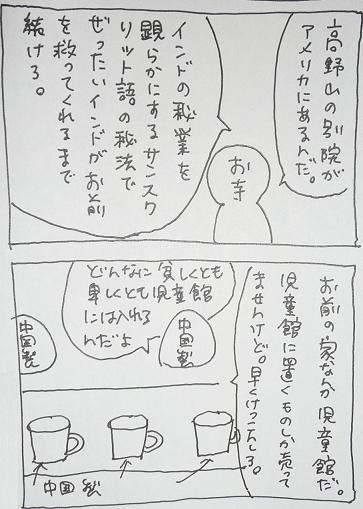 高野山の別院が
アメリカにあるんだ。
お寺
インドの秘業を
顕らかにするサンスク
リット語の秘法で
ぜったいインドがお前
を救ってくれるまで
続ける。
お前の家なんか児童館だ。
児童館に置くものしか売って
ませんけど。早くけっこんしろ。
どんなに貧しくとも
卑しくとも児童館
には入れる
んだよ
中国製
中国製
中国製